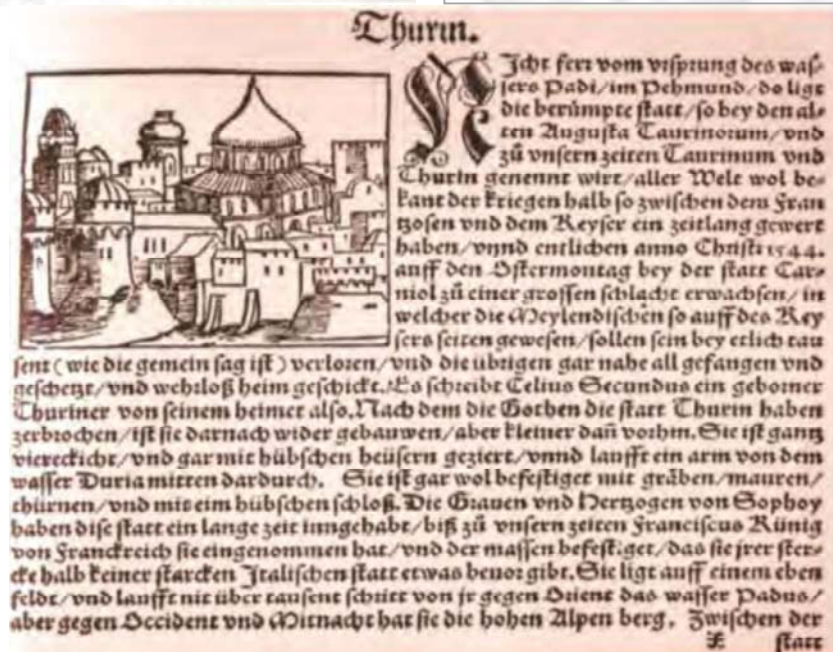 Thurin.
NJcht ferr vom vrsprung des was-
sers Padi/im Pehmund/do ligt
die berümpte statt/so bey den al-
ten Augusta Taurinorum/vnd
zů vnsern zeiten Taurinum vnd
Thurin genennt wirt/aller Welt wol be-
kant der kriegen halb so zwischen dem Fran
tzosen vnd dem Keyser ein zeitlang gewert
haben/vnnd entlichen anno Christi 1544.
auff den Ostermontag bey der statt Car-
niol zů einer grossen schlacht erwachsen/in
welcher die Meylendischen so auff des Key
sers seiten gewesen/sollen sein bey etlich tau
sent (wie die gemein sag ist) verloren/vnd die übrigen gar nahe all gefangen vnd
geschetzt/vnd wehrloß heim geschickt. Es schreibt Celius Secundus ein geborner
Thuriner von seinem heimet also. Nach dem die Gothen die statt Thurin haben
zerbrochen/ist sie darnach wider gebauwen/aber kleiner dañ vorhin. Sie ist gantz
viereckicht/vnd gar mit hübschen heüsern geziert/vnnd laufft ein arm von dem
wasser Duria mitten dardurch. Sie ist gar wol befestiget mit gräben/mauren/
thürnen/vnd mit eim hübschen schloß. Die Grauen vnd Hertzogen von Sophoy
haben dise statt ein lange zeit inngehabt/biß zů vnsern zeiten Franciscus Künig
von Franckreich sie eingenommen hat/vnd der massen befestiget/das sie jrer ster-
cke halb keiner starcken Jtalischen statt etwas beuor gibt. Sie ligt auff einem eben
feldt/vnd laufft nit über tausent schritt von jr gegen Orient das wasser Padus/
aber gegen Occident vnd Mitnacht hat sie die hohen Alpen berg. Zwischen der
statt